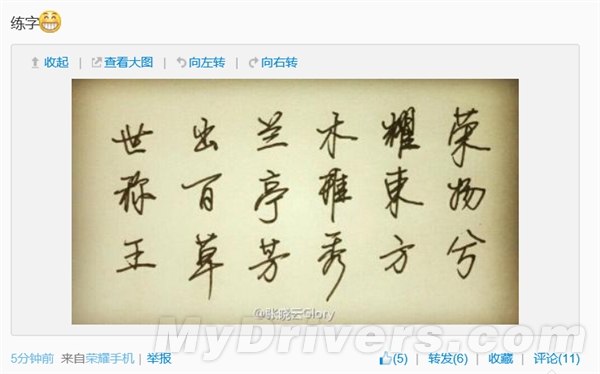 练字
收起 | 查看大图 | 向左转 | 向右转
荣扬兮
耀東方
木雅秀
兰亭芳
出百草
世称王
@张晓云Glory
MyDrivers.com
5分钟前 来自荣耀手机 | 举报
(5) | 转发(6) | 收藏 | 评论(11)